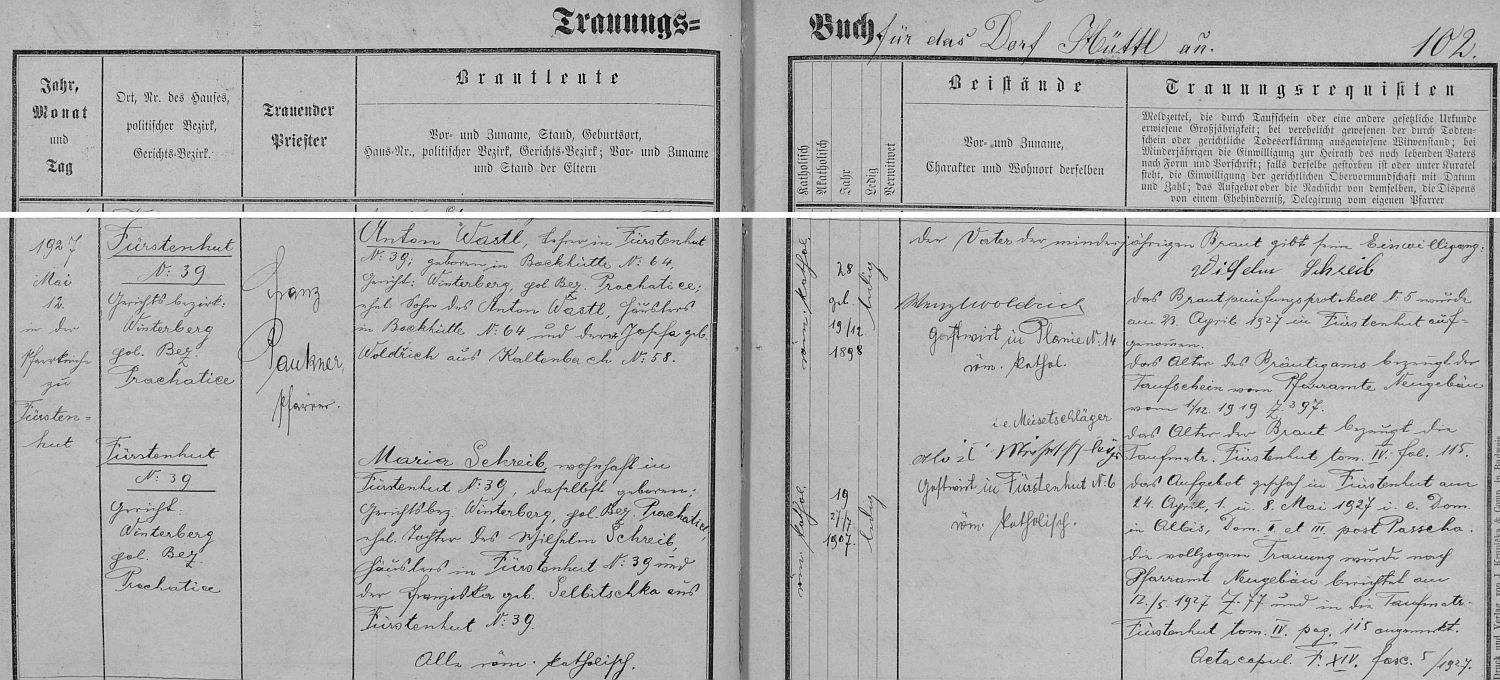 Trauungs=
Buch für das Dorf Hüttl an.
102.
Jahr,
Monat
und
Tag
Ort, Nr. des Hauses,
politischer Bezirk,
Gerichts-Bezirk.
Trauender
Priester
Brautleute
Vor- und Zuname, Stand, Geburtsort,
Haus-Nr., politischer Bezirk, Gerichts-Bezirk; Vor- und Zuname
und Stand der Eltern
Katholisch
Akatholisch
Jahr
Ledig
Verwitwet
Beistände
Vor- und Zuname,
Charakter und Wohnort derselben
Trauungsrequisiten
Meldzettel, die durch Taufschein oder eine andere gesetzliche Urkunde
erwiesene Großjährigkeit; bei verehelicht gewesenen der durch Todten-
schein oder gerichtliche Todeserklärung ausgewiesene Witwenstand; bei
Minderjährigen die Einwilligung zur Heirath des noch lebenden Vaters
nach Form und Vorschrift; falls derselbe gestorben ist oder unter Kuratel
steht, die Einwilligung der gerichtlichen Obervormundschaft mit Datum
und Zahl; das Aufgebot oder die Nachsicht von demselben, die Dispens
von einem Ehehinderniß, Delegirung vom eigenen Pfarrer
1927
Mai
12.
in der
Pfarrkirche
zu
Fürsten=
hut
Fürstenhut
N: 39
Gerichtsbezirk:
Winterberg
pol. Bez.
Prachatice
Franz
Paukner,
Pfarrer.
Anton Wastl, Lehrer in Fürstenhut
N: 39; geboren in Backhütte N: 64,
Gericht: Winterberg, pol Bez. Prachatice;
ehel. Sohn des Anton Wastl, Häuslers
in Backhütte N: 64 und der Josefa geb.
Woldřich aus Kaltenbach N: 58.
röm. kathol.
28
geb
19/12
1898
ledig
Wenzl Woldrich
Gastwirt in Planie N: 14
röm. kathol.
Der Vater der minderjährigen Braut gibt seine Einwilligung:
Wilhelm Schreib
Das Brautprüfungsprotokoll N: 5 wurde
am 23. April 1927 in Fürstenhut auf-
genommen.
Das Alter des Bräutigams bezeugt der
Taufschein vom Pfarramte Neugebäu
vom 1/12 1919 Z. 397.
Das Alter der Braut bezeugt die
Taufmatr. Fürstenhut tom. IV. fol. 115.
Das Aufgebot geschah in Fürstenhut am
24. April, 1. u. 8. Mai 1927 i. e. Dom.
in Albis, Dom. II. et III. post Pascha.
Die vollzogene Trauung wurde nach
Pfarramt Neugebäu berichtet am
12./5 1927 Z. 77 und in die Taufmatr.
Fürstenhut tom. IV. pag. 115 angemerkt.
Acta capul. F. XIV. fasc. 5/1927.
Fürstenhut
N: 39
Gericht:
Winterberg
pol. Bez.
Prachatice
Maria Schreib, wohnhaft in
Fürstenhut N: 39, daselbst geboren;
Gerichtsbez. Winterberg, pol. Bez. Prachatice,
ehel. Tochter des Wilhelm Schreib,
Häuslers in Fürstenhut N: 39 und
der Franziska geb. Selbitschka aus
Fürstenhut N: 39.
Alle röm. katholisch.
röm. kathol.
19
1907.
ledig
i. e. Meisetschläger
Gastwirt in Fürstenhut N: 6
röm katholisch.
Druck und Verlag von J. Kepnicka & Comp. in Budweis